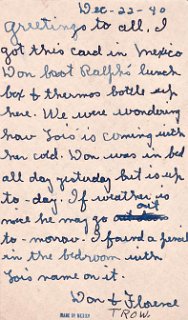 Dec-22-40
Greetings to all, I
got this card in Mexico
Don boot Ralph's lunch
box & thermos bottle up
here. We were wondering
how Lois is coming with
her cold. Don was in bed
all day yesturday but is up
to-day. If weather is
nice he may go out
to-morrow. I found a pencil
in the bedroom with
Lois name on it.
Don & Florence
TROW.
MADE IN MEXICO